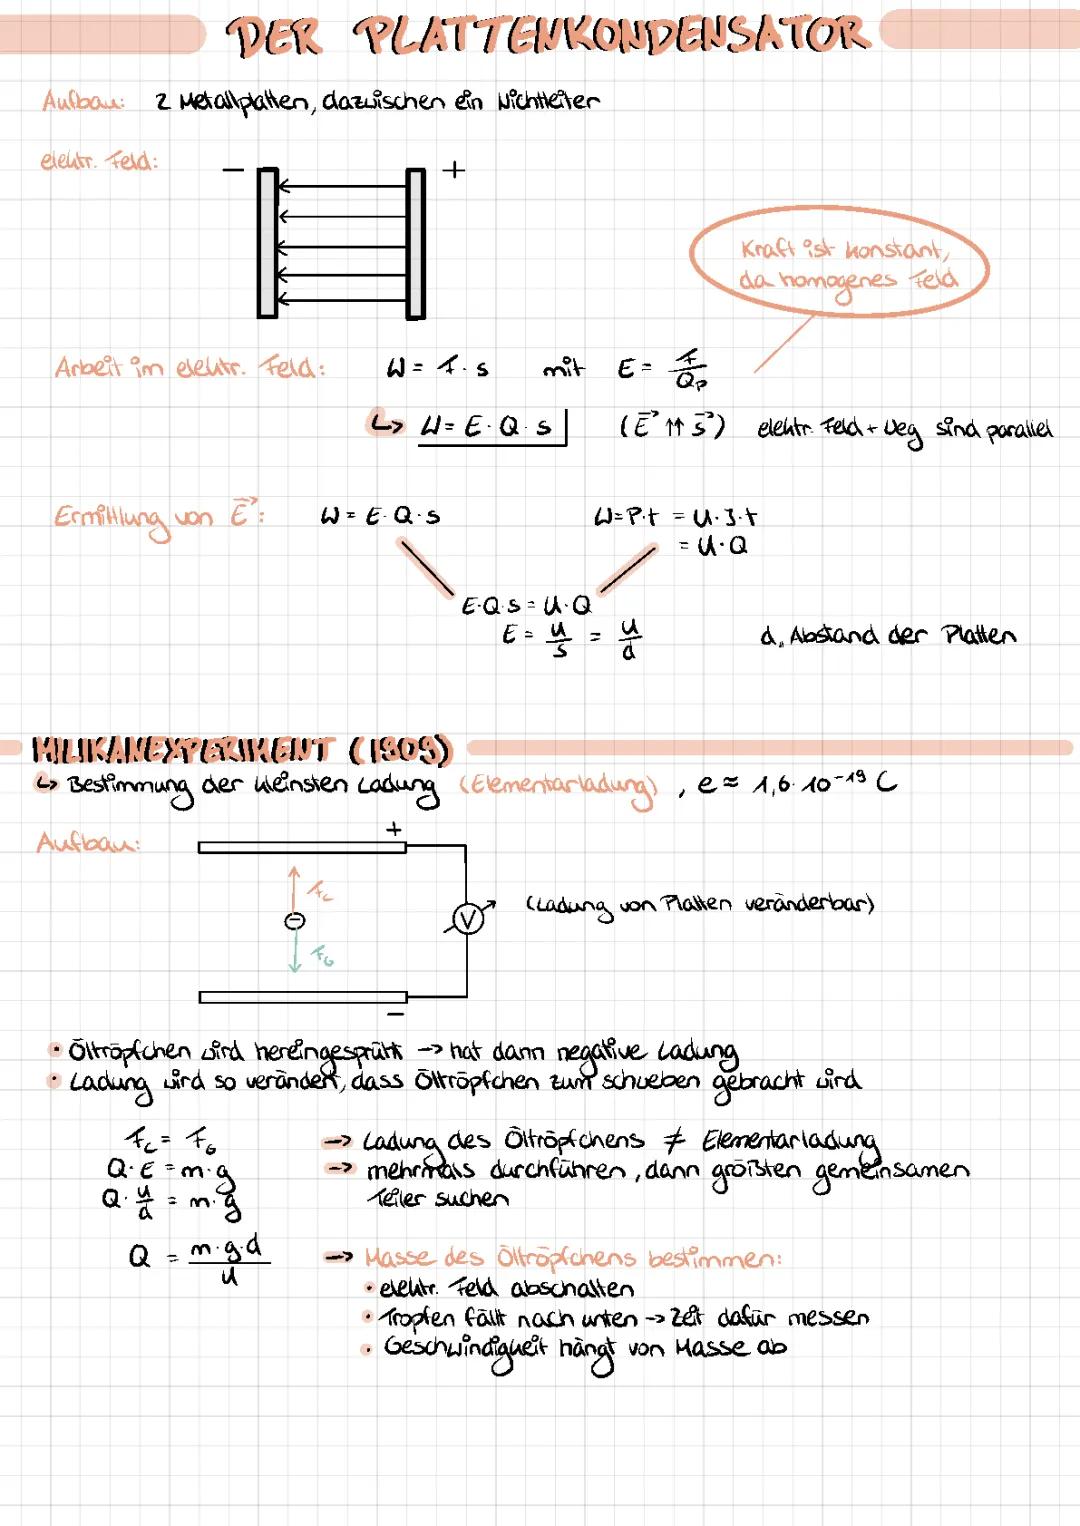 DER PLATTENKONDENSATOR
Aufbau: 2 Metallplatten, dazwischen ein Nichtleiter
elektr. Feld:
- +
Kraft ist konstant,
da homogenes Feld
Arbeit im elektr. Feld: W = F · s mit E = F/Qp
↳ W = E · Q · s (E⃗ ↑↑ s⃗) elektr. Feld + Weg sind parallel
Ermittlung von E⃗: W = E · Q · s W = P · t = U · I · t
= U · Q
E · Q · s = U · Q
E = U/s = U/d d, Abstand der Platten
MILIKANEXPERIMENT (1909)
↳ Bestimmung der kleinsten Ladung (Elementarladung), e ≈ 1,6 · 10⁻¹⁹ C
Aufbau:
+
F_C
V (Ladung von Platten veränderbar)
F_G
-
• Öltröpfchen wird hereingesprüht → hat dann negative Ladung
• Ladung wird so verändert, dass Öltröpfchen zum schweben gebracht wird
F_C = F_G → Ladung des Öltröpfchens ≠ Elementarladung
Q · E = m · g → mehrmals durchführen, dann größten gemeinsamen
Q · U/d = m · g Teiler suchen
Q = m·g·d/U → Masse des Öltröpfchens bestimmen:
• elektr. Feld abschalten
• Tropfen fällt nach unten → Zeit dafür messen
• Geschwindigkeit hängt von Masse ab